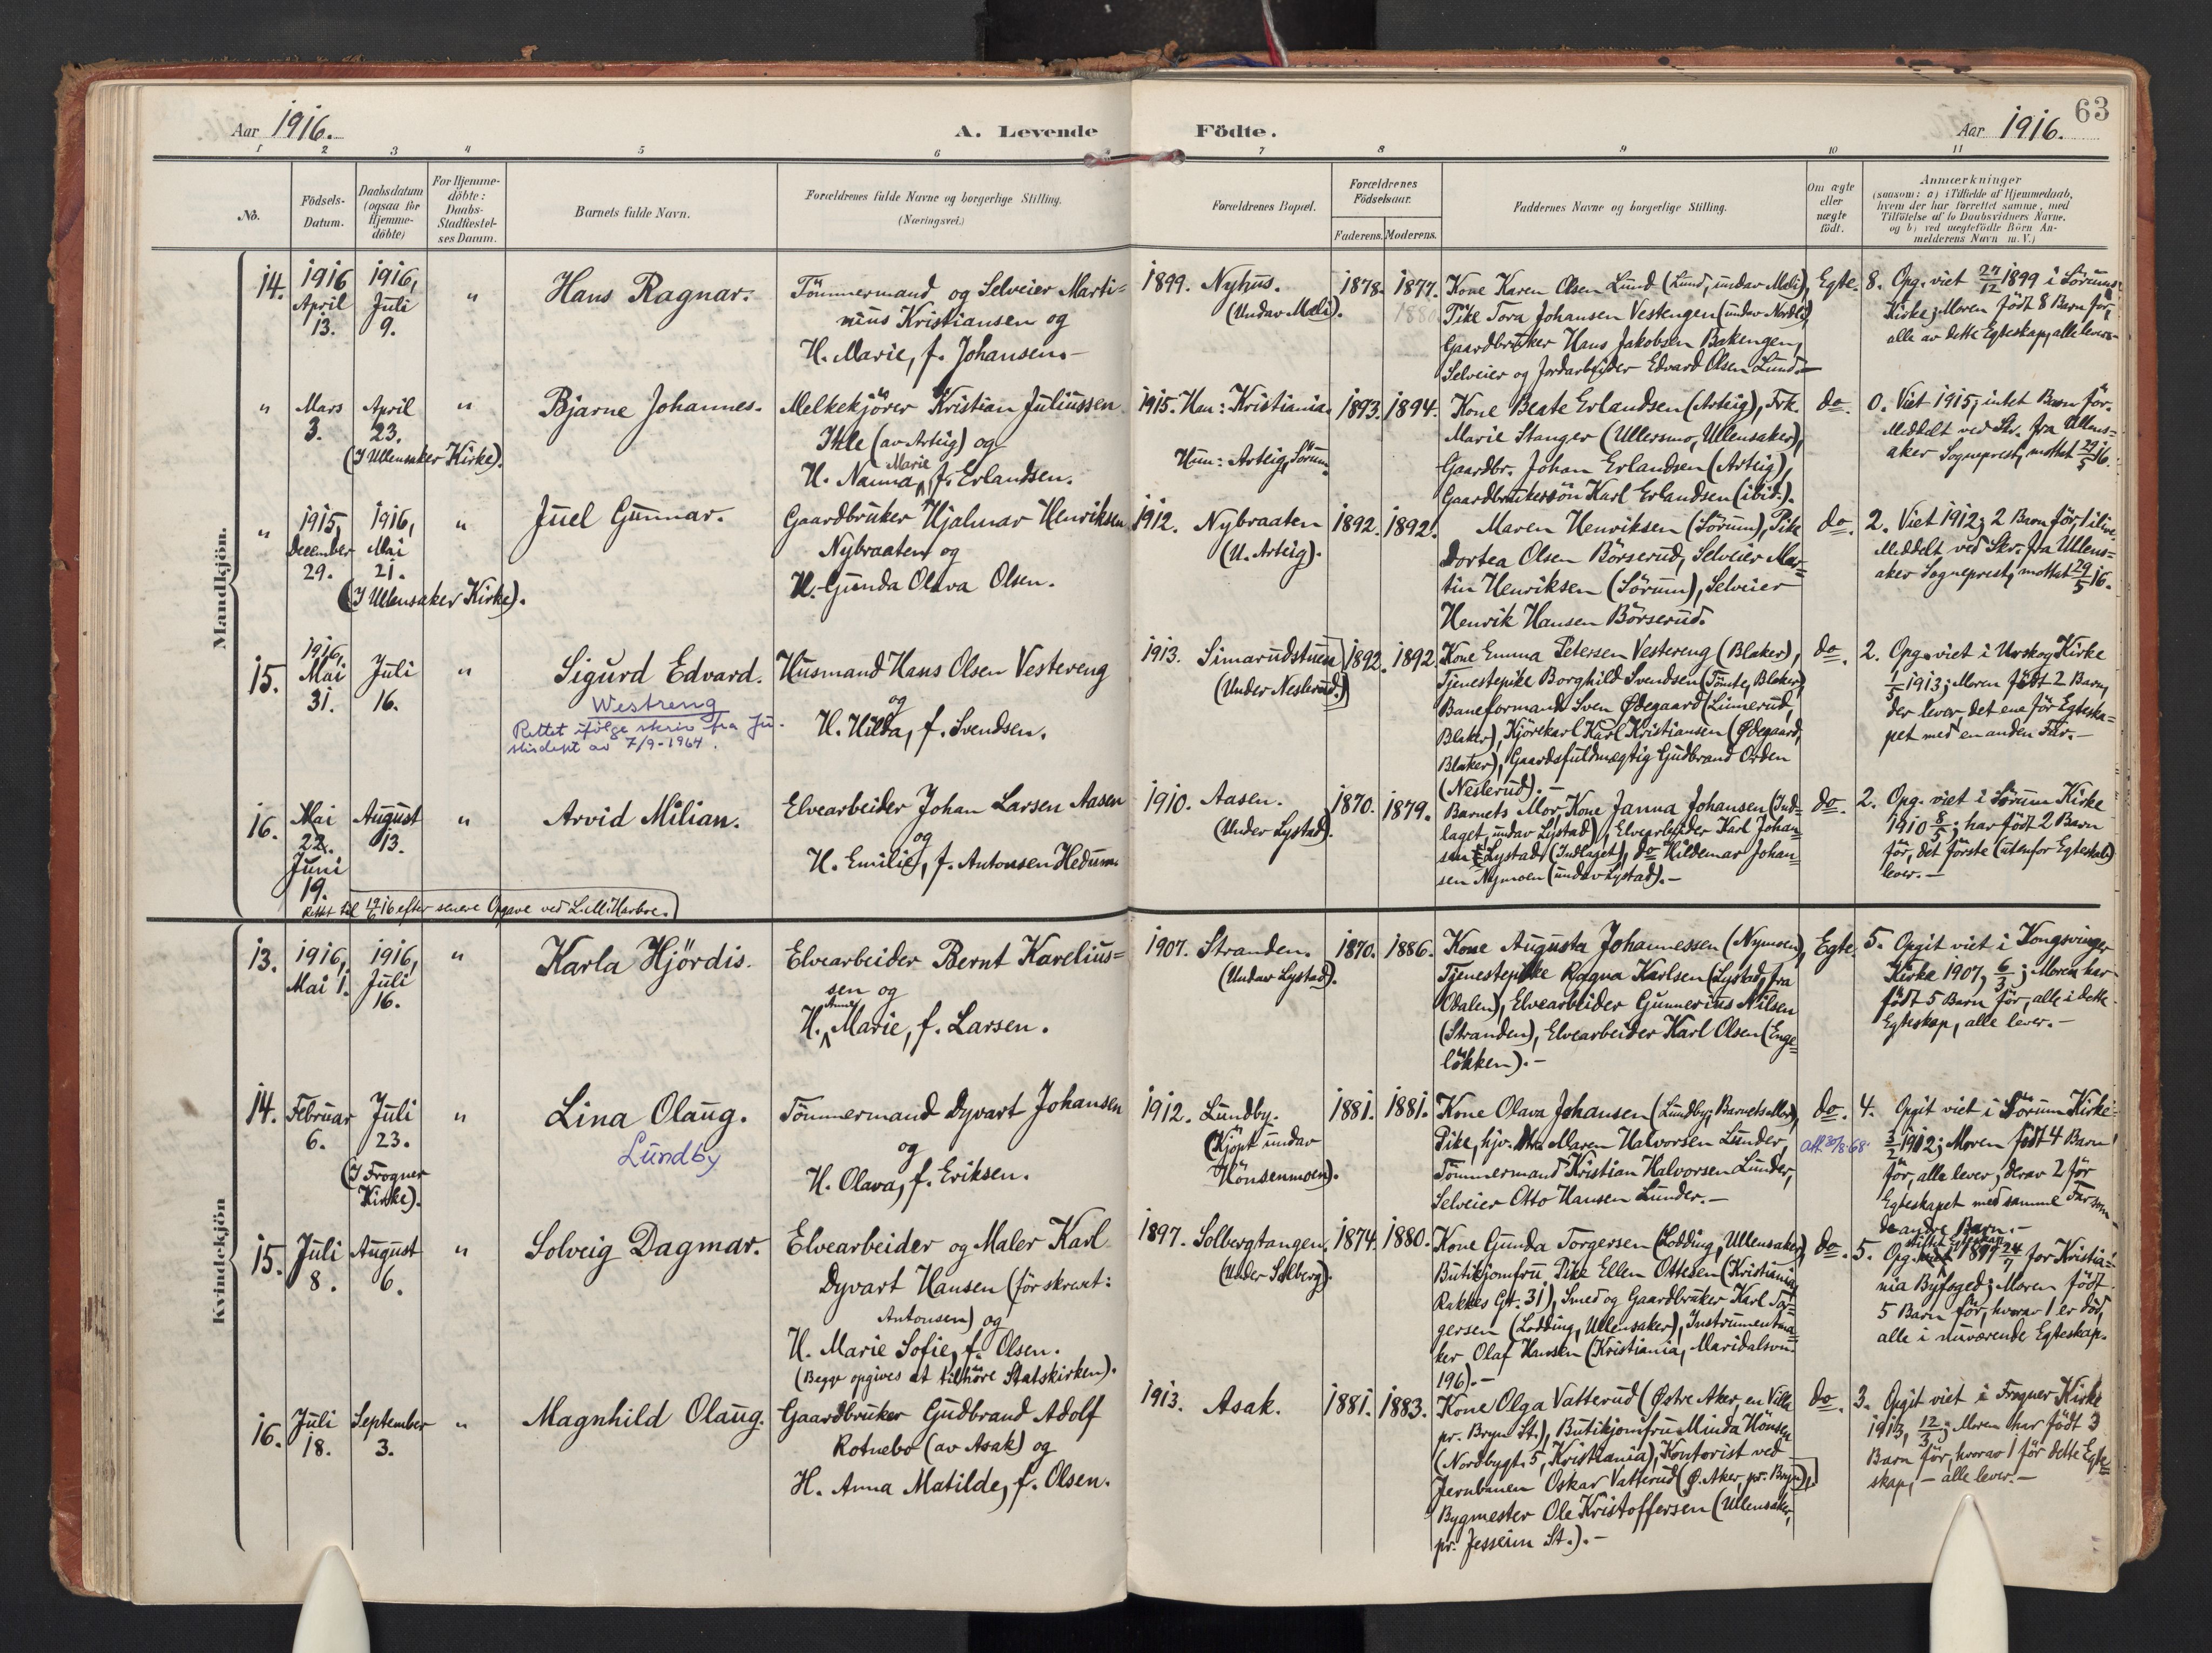 63
Aar 1916.
A. Levende Födte.
Aar 1916.
1 2 3 4 5 6 7 8 9 10 11
No.
Födsels-
Datum.
Daabsdatum
(ogsaa for
Hjemme-
döbte)
For Hjemme-
döbte:
Daabs-
Stadfæstel-
ses Datum.
Barnets fulde Navn.
Forældrenes fulde Navne og borgerlige Stilling.
(Næringsvei.)
Forældrenes Bopæl.
Forældrenes
Födselsaar.
Faderens. Moderens.
Faddernes Navne og borgerlige Stilling.
Om ægte
eller
uægte
födt.
Anmærkninger
(saasom: a) i Tilfælde af Hjemmedaab,
hvem der har forrettet samme, med
Tilföielse af to Daabsvidners Navne.
og b) ved uægtefödte Börn An-
melderens Navn m. V.)
Mandkjön.
14.
1916
April
13.
1916,
Juli
9.
"
Hans Ragnar.
Tömmermand og Selveier Marti-
nius Kristiansen og
H. Marie, f. Johansen.-
1899. Nyhus.
(Undav Mæli).
1878. 1877.
Kone Karen Olsen Lund (Lund, undav Mæli),
Pike Tora Johansen Vestengen (undav Nordli),
Gaardbruker Hans Jakobsen Bakengen,
Selveier og Jordarbeider Edvard Olsen Lund.-
Egte.
8. Opg. viet 27/12 1899 i Sörums
Kirke; Moren födt 8 Barn för,
alle av dette Egteskap, alle lever.-
"
Mars
3.
April
23.
(I Ullensaker Kirke).
"
Bjarne Johannes.
Melkekjörer Kristian Juliussen
Ihle (av Arteig) og
Marie
H. Nanna, f. Erlandsen.
1915. Han: Kristiania.
Hun: Arteig, Sörum.
1893. 1894.
Kone Beate Erlandsen (Arteig), Frk.
Marie Stanger (Ullersmo, Ullensaker),
Gaardbr. Johan Erlandsen (Arteig),
Gaardbrukersön Karl Erlandsen (ibid.).
do.
0. Viet 1915; intet Barn för.
Meddelt ved Skr. fra Ullens=
aker Sogneprest, mottat 29/5 16.
"
1915,
December
29.
1916,
Mai
21.
(I Ullensaker Kirke).
"
Juel Gunnar.
Gaardbruker Hjalmar Henriksen
Nybraaten og
H. Gunda Olava Olsen.
1912. Nybraaten
(U. Arteig).
1892. 1892.
Maren Henriksen (Sörum), Pike
Dortea Olsen Börserud, Selveier Mar=
tin Henriksen (Sörum), Selveier
Henrik Hansen Börserud.
do.
2. Viet 1912; 2 Barn för, 1 ilive.
Meddelt ved Skr. fra Ullens=
aker Sogneprest, mottat 29/5 16.
15.
1916,
Mai
31.
Juli
16.
"
Sigurd Edvard.
Westreng
Rettet ifölge skriv fra Ju-
stisdept av 7/9-1964.
Husmand Hans Olsen Vestereng
og
H. Hilda, f. Svendsen.
1913. Simarudstuen
(Under Neslerud.)
1892. 1892
Kone Emma Petersen Vestereng (Blaker),
Tjenestepike Borghild Svendsen (Tomte, Blaker),
Baneformand Sven Ødegaard (Linnerud,
Blaker), Kjörekarl Karl Kristiansen (Ødegaard,
Blaker), Gaardsfuldmægtig Gudbrand Orden
(Neslerud).-
do.
2. Opg. viet i Urskog Kirke
1/5 1913; Moren födt 2 Barn,
der lever, det ene för Egteska=
pet med en anden Far.-
16.
Mai
22.
Juni
19.
August
13.
"
Rettet til 19/6 16 efter senere Opgave ved
Arvid Milian.
Elvearbeider Johan Larsen Aasen
og
H. Emilie, f. Antonsen Hedum
1910. Aasen.
(Under Lystad).
1870. 1879.
Barnets Mor, Kone Janna Johansen (Ind-
laget, undav Lystad), Elvearbeider Karl Johan=
sen Lystad (Indlaget), do Hildemar Johan=
sen Nymoen (undav Lystad).-
do.
2. Opg. viet i Sörum Kirke
1910 8/5; har födt 2 Barn
för, det förste (utenfor Egteskab)
lever.-
Kvindekjön
13.
1916,
Mai 1.
1916,
Juli
16.
"
Karla Hjördis.
Elvearbeider Bernt Karelius=
sen og
Anne
H. Marie, f. Larsen.
1907. Stranden.
(Undav Lystad).
1870. 1886.
Kone Augusta Johannessen (Nymoen),
Tjenestepike Ragna Karlsen (Lystad, fra
Odalen), Elvearbeider Gunnerius Nilsen
(Stranden), Elvearbeider Karl Olsen (Enge=
lökken).-
Egte.
5. Opgit viet i Kongsvinger
Kirke 1907, 6/3; Moren har
födt 5 Barn för, alle i dette
Egteskap, alle lever.-
14.
Februar
6.
Juli
23.
(I Frogner
Kirke).
"
Lina Olaug.
Lundby
Tömmermand Dyvart Johansen
og
H. Olava, f. Eriksen.
1912. Lundby.
(Kjöpt undav
Hönsenmoen).
1881. 1881.
Kone Olava Johansen (Lundby, Barnets Mor),
Pike, hjv. Maren Halvorsen Lunder,
Tömmermand Kristian Halvorsen Lunder,
Selveier Otto Hansen Lunder.-
do.
att 30/8-68.
4. Opgit viet i Sörum Kirke
3/2 1912; Moren födt 4 Barn
för, alle lever; derav 2 för
Egteskapet med samme Far som
de andre Barn.-
15.
Juli
8.
August
6.
"
Solveig Dagmar.
Elvearbeider og Maler Karl
Dyvart Hansen (för skrevet:
Antonsen) og
H. Marie Sofie, f. Olsen.
(Begge opgives at tilhöre Statskirken).
1897. Solbergtangen.
(Under Solberg).
1874. 1880.
Kone Gunda Torgersen (Lodding, Ullensaker),
Butikjomfru Pike Ellen Ottesen (Kristiania,
Rakkes Gt. 31), Smed og Gaardbruker Karl Tor=
gersen (Lodding, Ullensaker), Instrumentma=
ker Olaf Hansen (Kristiania, Maridalsvn
196).-
do.
stiftet Egteskap
5. Opg. viet 1897 24/7 for Kristia=
nia Byfoged; Moren födt
5 Barn för, hvorav 1 er död,
alle i nuværende Egteskap.
16.
Juli
18.
September
3.
"
Magnhild Olaug.
Gaardbruker Gudbrand Adolf
Rotnebo (av Asak) og
H. Anna Matilde, f. Olsen.
1913. Asak.
1881. 1883.
Kone Olga Vatterud (Østre Aker, en Villa
pr. Bryn St.), Butikjomfru Minda Hönsen
(Nordbygt. 5, Kristiania), Kontorist ved
Jernbanen Oskar Vatterud (Ø. Aker, pr. Bryn),
Bygmester Ole Kristoffersen (Ullensaker,
pr. Jesseim St.).-
do.
3. Opgit viet i Frogner Kirke
1913, 12/3; Moren har födt 3
Barn för, hvorav 1 för dette Egte=
skap, - alle lever.-